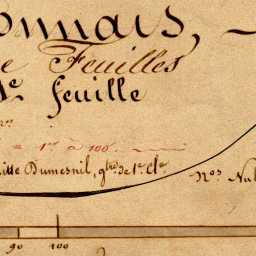 onnais,
e Feuilles
1e feuille
= 1 à 100.
itte Dumesnil, gtre de 1re Cle
Nos Nu
90 100